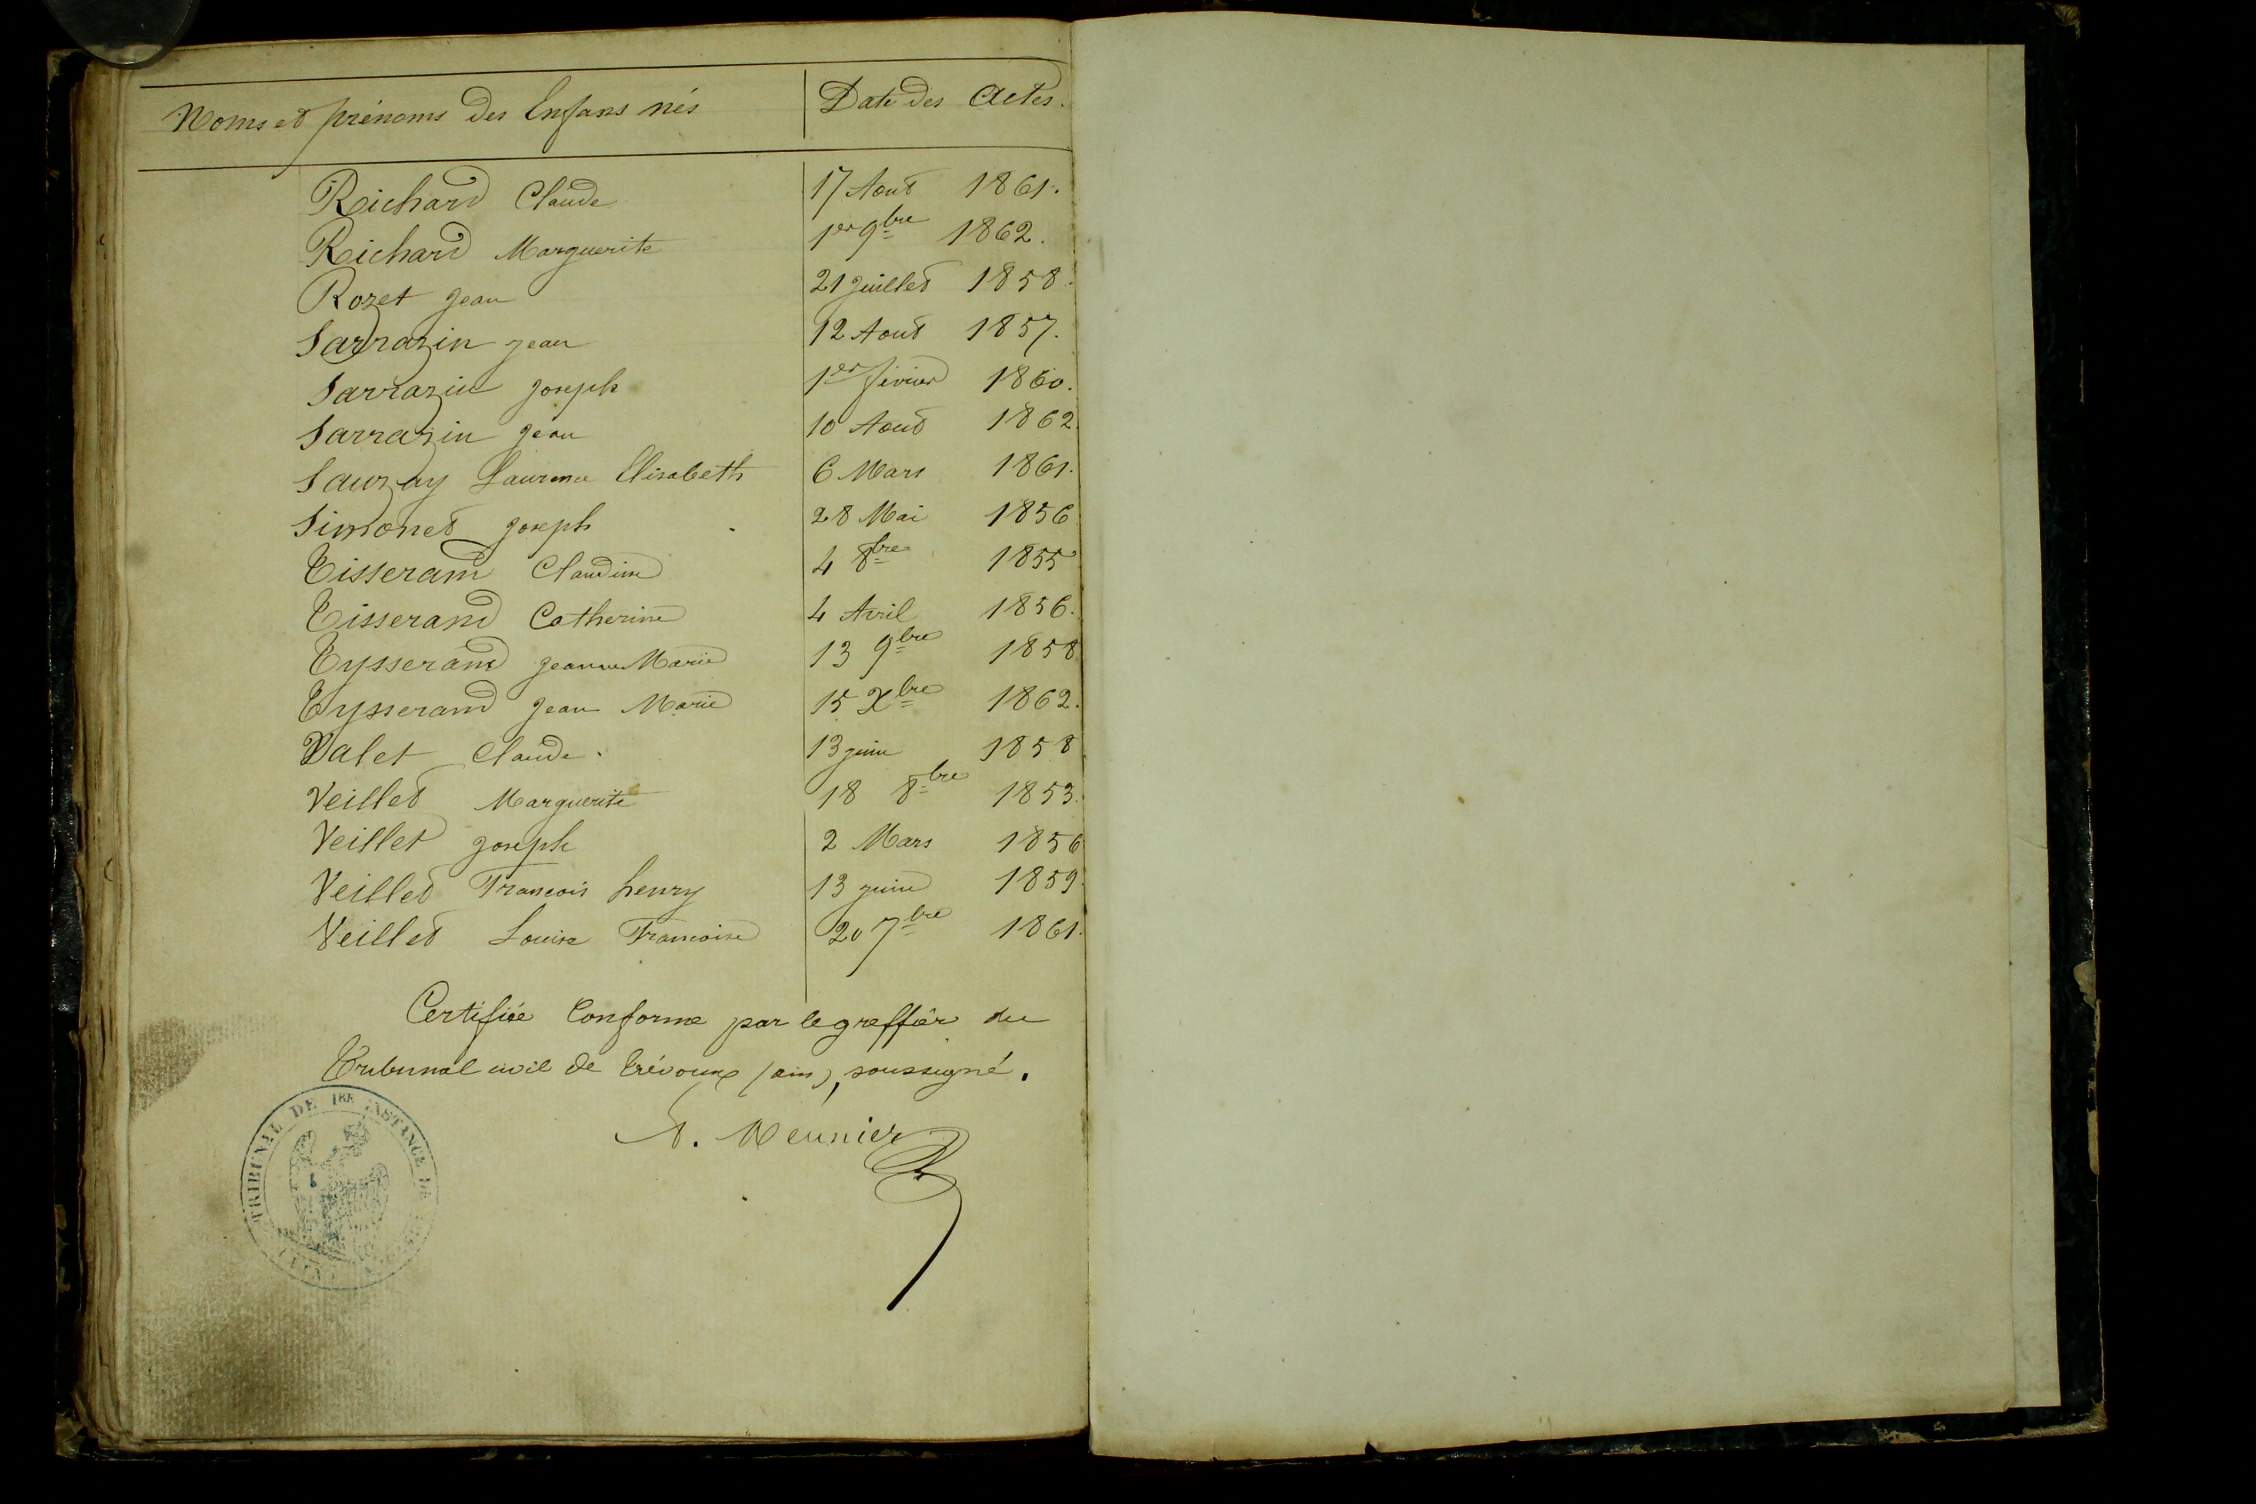 Noms et prénoms des Enfans nés | Date des Actes.
Richard Claude 17 Aout 1861.
Richard Marguerite 1er 9bre 1862.
Rozet Jean 21 Juillet 1858.
Sarrazin Jean 12 Aout 1857.
Sarrazin Joseph 1er février 1860.
Sarrazin Jean 10 Aout 1862.
Sauzay Laurence Elisabeth 6 Mars 1861.
Simonet Joseph 28 Mai 1856
Tisserand Claudine 4 8bre 1855
Tisserand Catherine 4 Avril 1856.
Tysserand Jeanne Marie 13 9bre 1858
Tysserand Jean Marie 15 Xbre 1862.
Valet Claude. 13 juin 1858
Veillet Marguerite 18 8bre 1853.
Veillet Joseph 2 Mars 1856
Veillet Francois henry 13 juin 1859.
Veillet Louise Francoise 20 7bre 1861.
Certifiée Conforme par le greffier du
Tribunal civil de Trévoux (ain), soussigné.
A. Meunier
TRIBUNAL DE 1RE INSTANCE DE